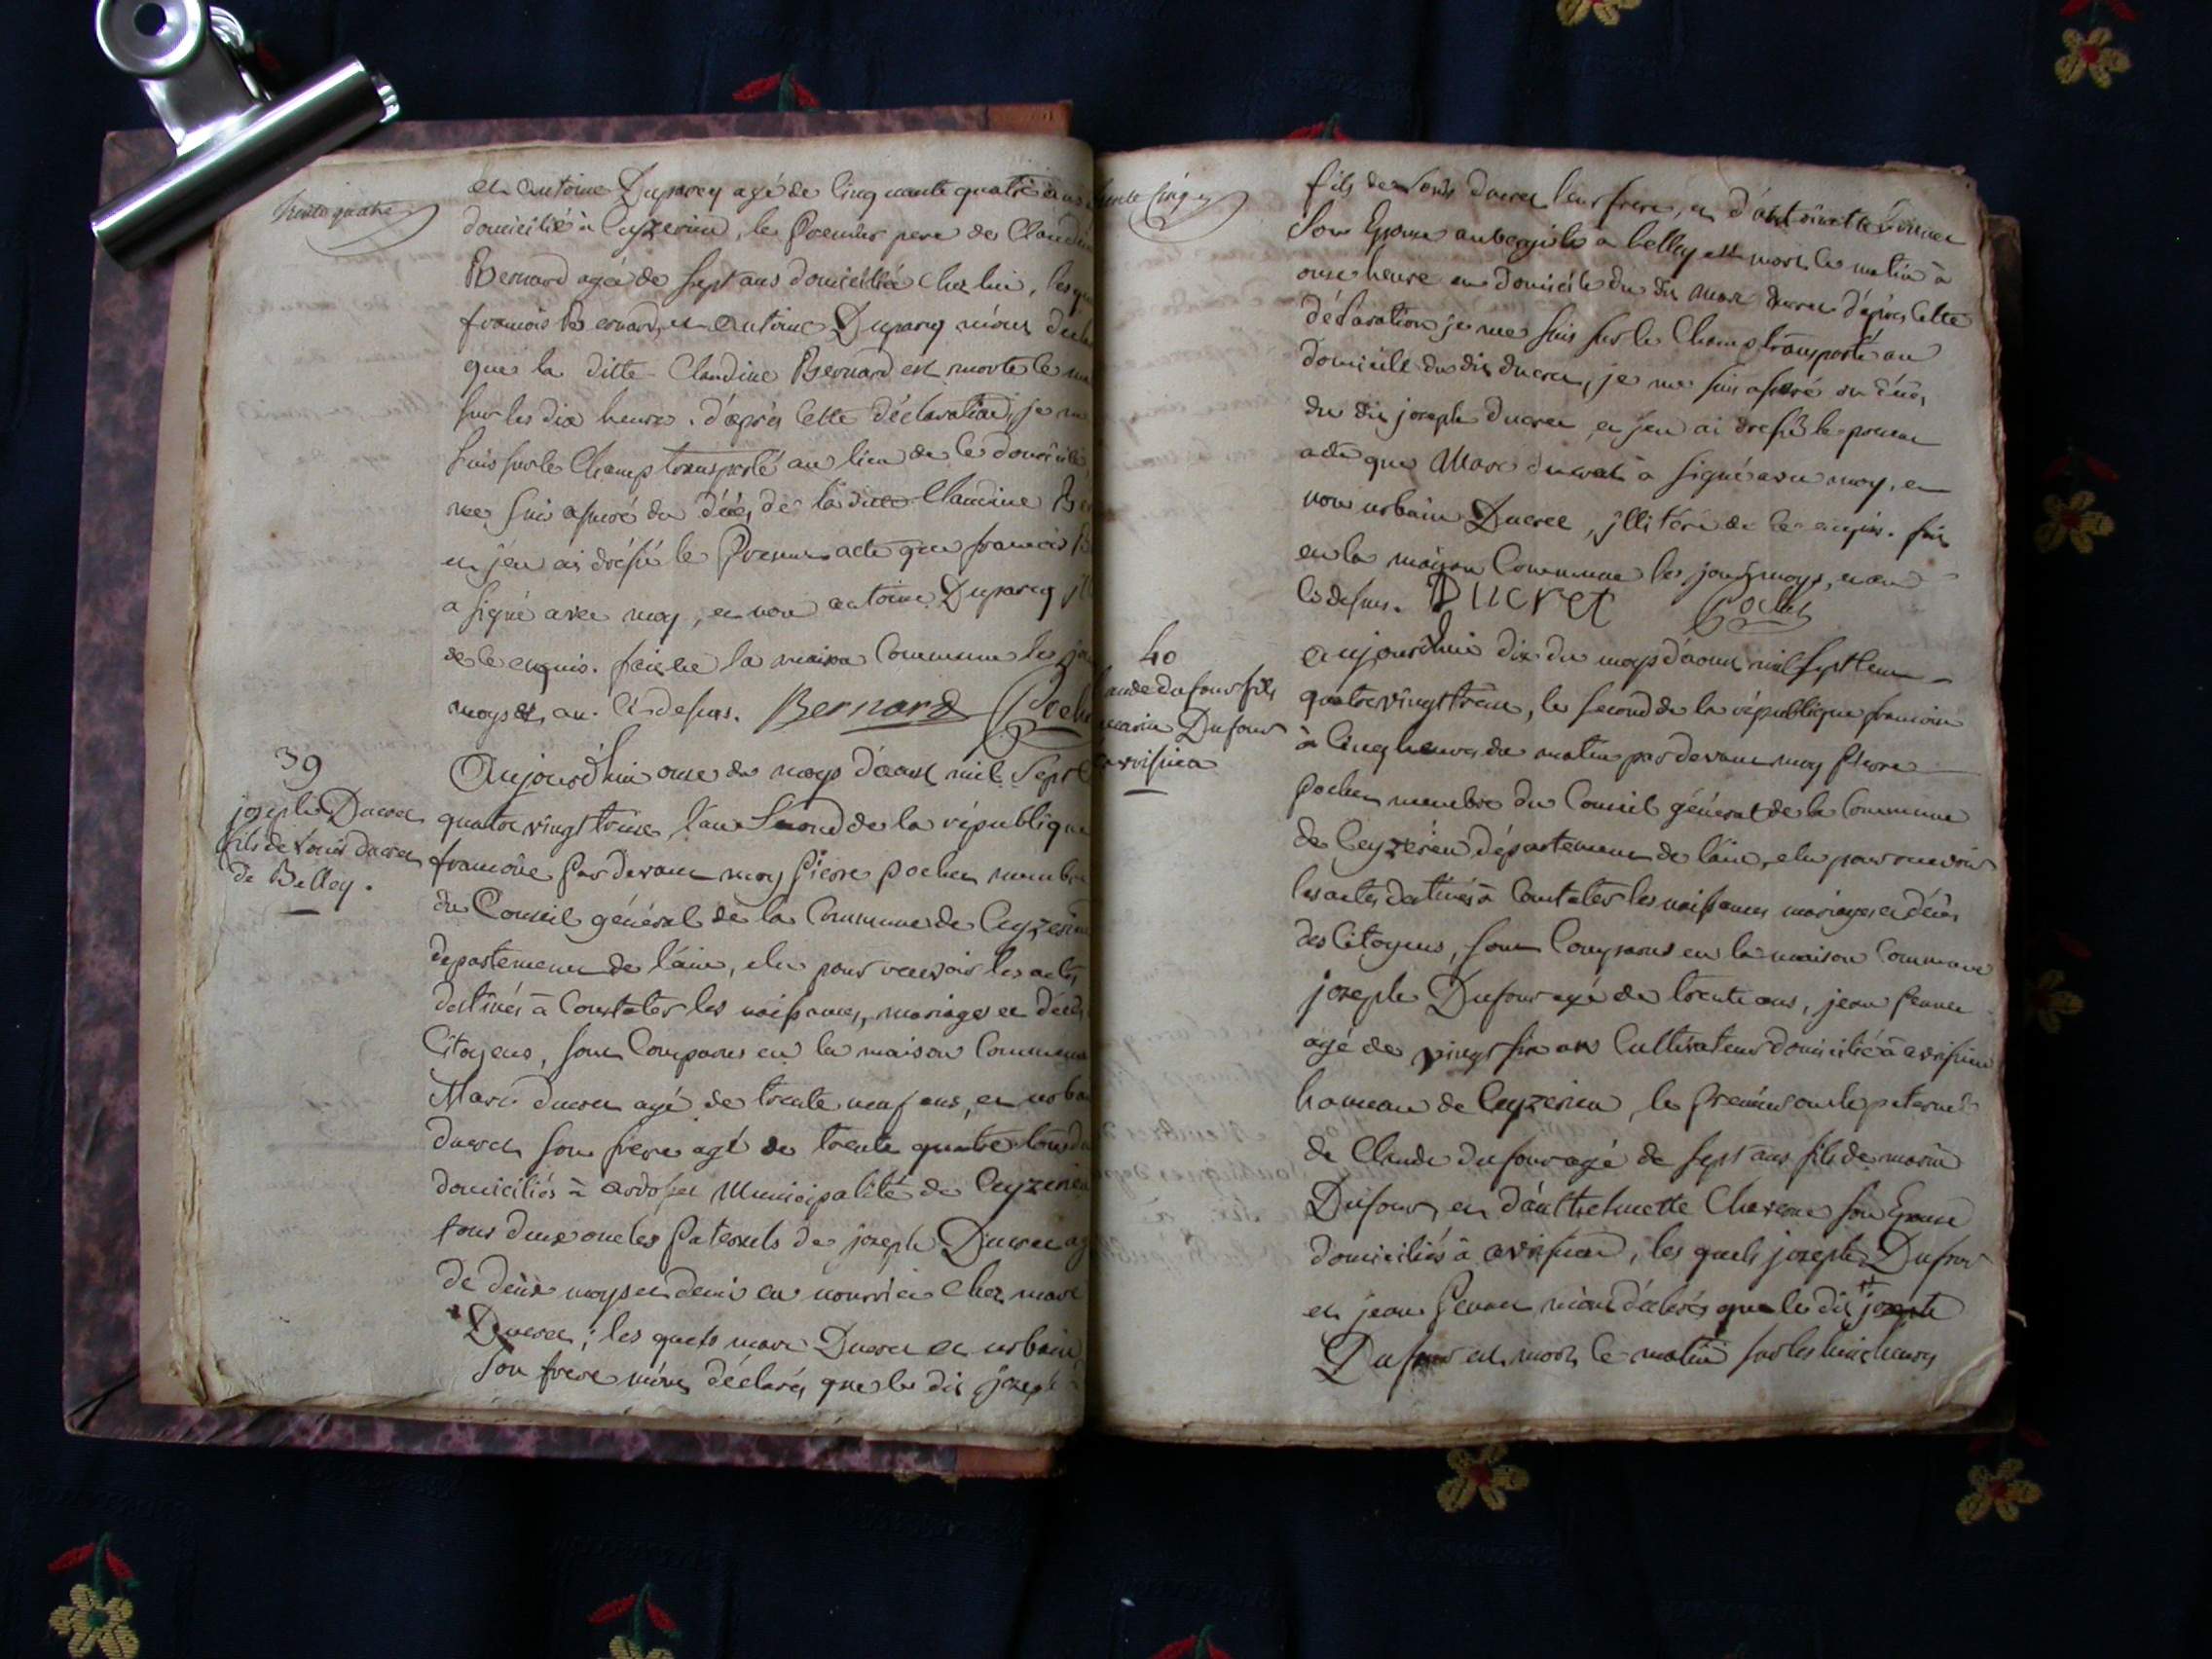 trente quatre
et antoine Duparcy agé de Cinquante quatre ans
domicilié à Ceyzerieu, le Premier pere de Claudine
Bernard agée de sept ans domiciliée chez lui,
francois Bernard, et Antoine Duparcy m'ont
que la ditte Claudine Bernard est morte ce
sur les dix heures. d'après Cette déclaration, je me
suis sur le Champ transporté au lieu de ce domicile
me suis assuré du décés de la ditte Claudine
et j'en ai dréssé le Present acte que francois
a signé avec moy, et non antoine Duparcy
de ce enquis. fait en la maison Commune les
moys et an Ci dessus. Bernard
39
joseph Ducret
fils de Louis ducret
de Belley.
Aujourd'hui onze du moys d'aoust mil Sept
quatre vingt treize, l'an Second de la république
francoise Par devant moy Pierre pochet membre
du Conseil général de la Commune de Ceyzerieu
departement de l'ain, elu pour recevoir les actes
destinés à Constater les naissances, mariages et décés
Citoyens, sont Comparus en la maison Commune
Marc ducret agé de trente neuf ans, et
ducret son frere agé de trente quatre tous
domiciliés à ardosset Municipalité de Ceyzerieu
tous deux oncles Paternels de joseph Ducret
de deux moys et demi en nourrice chez marc
Ducret; les quels marc Ducret et urbain
son frere m'ont déclarés que le dit joseph
fils de Louis ducret leur frere, et d'antoinette
son Epouse aubergiste à belley est mort ce matin à
onze heure au domicile du dit Marc ducret d'après Cette
déclaration je me suis sur le Champ transporté au
domicile du dit ducret, je me suis assuré du décés
du dit joseph ducret, et j'en ai dressé le present
acte que Marc ducret à signé avec moy, et
non urbain Ducret, illitéré de ce enquis. fait
en la maison Commune les jour, moys, et an
Ci dessus. Ducret Pochet
40
Dufour fils
marin Dufour
avrissieu
Aujourd'hui dix du moys d'aoust mil sept Cent
quatre vingt treize, le second de la république francoise
à Cinq heures du matin par devant moy Pierre
Pochet membre du Conseil général de la Commune
de Ceyzerieu département de l'ain, elu pour recevoir
les actes destinés à Constater les naissances mariages et décés
des Citoyens, sont Comparus en la maison Commune
joseph Dufour agé de trente ans, jean
agé de vingt six ans Cultivateurs domicilié à avrissieu
hameau de Ceyzerieu, le premier oncle paternel
de Claude dufour agé de sept ans fils de marin
Dufour, et d'anthelmette son Epouse
domiciliés à avrissieu, les quels joseph Dufour
et jean m'ont déclarés que le dit joseph
Dufour est mort ce matin sur les heures